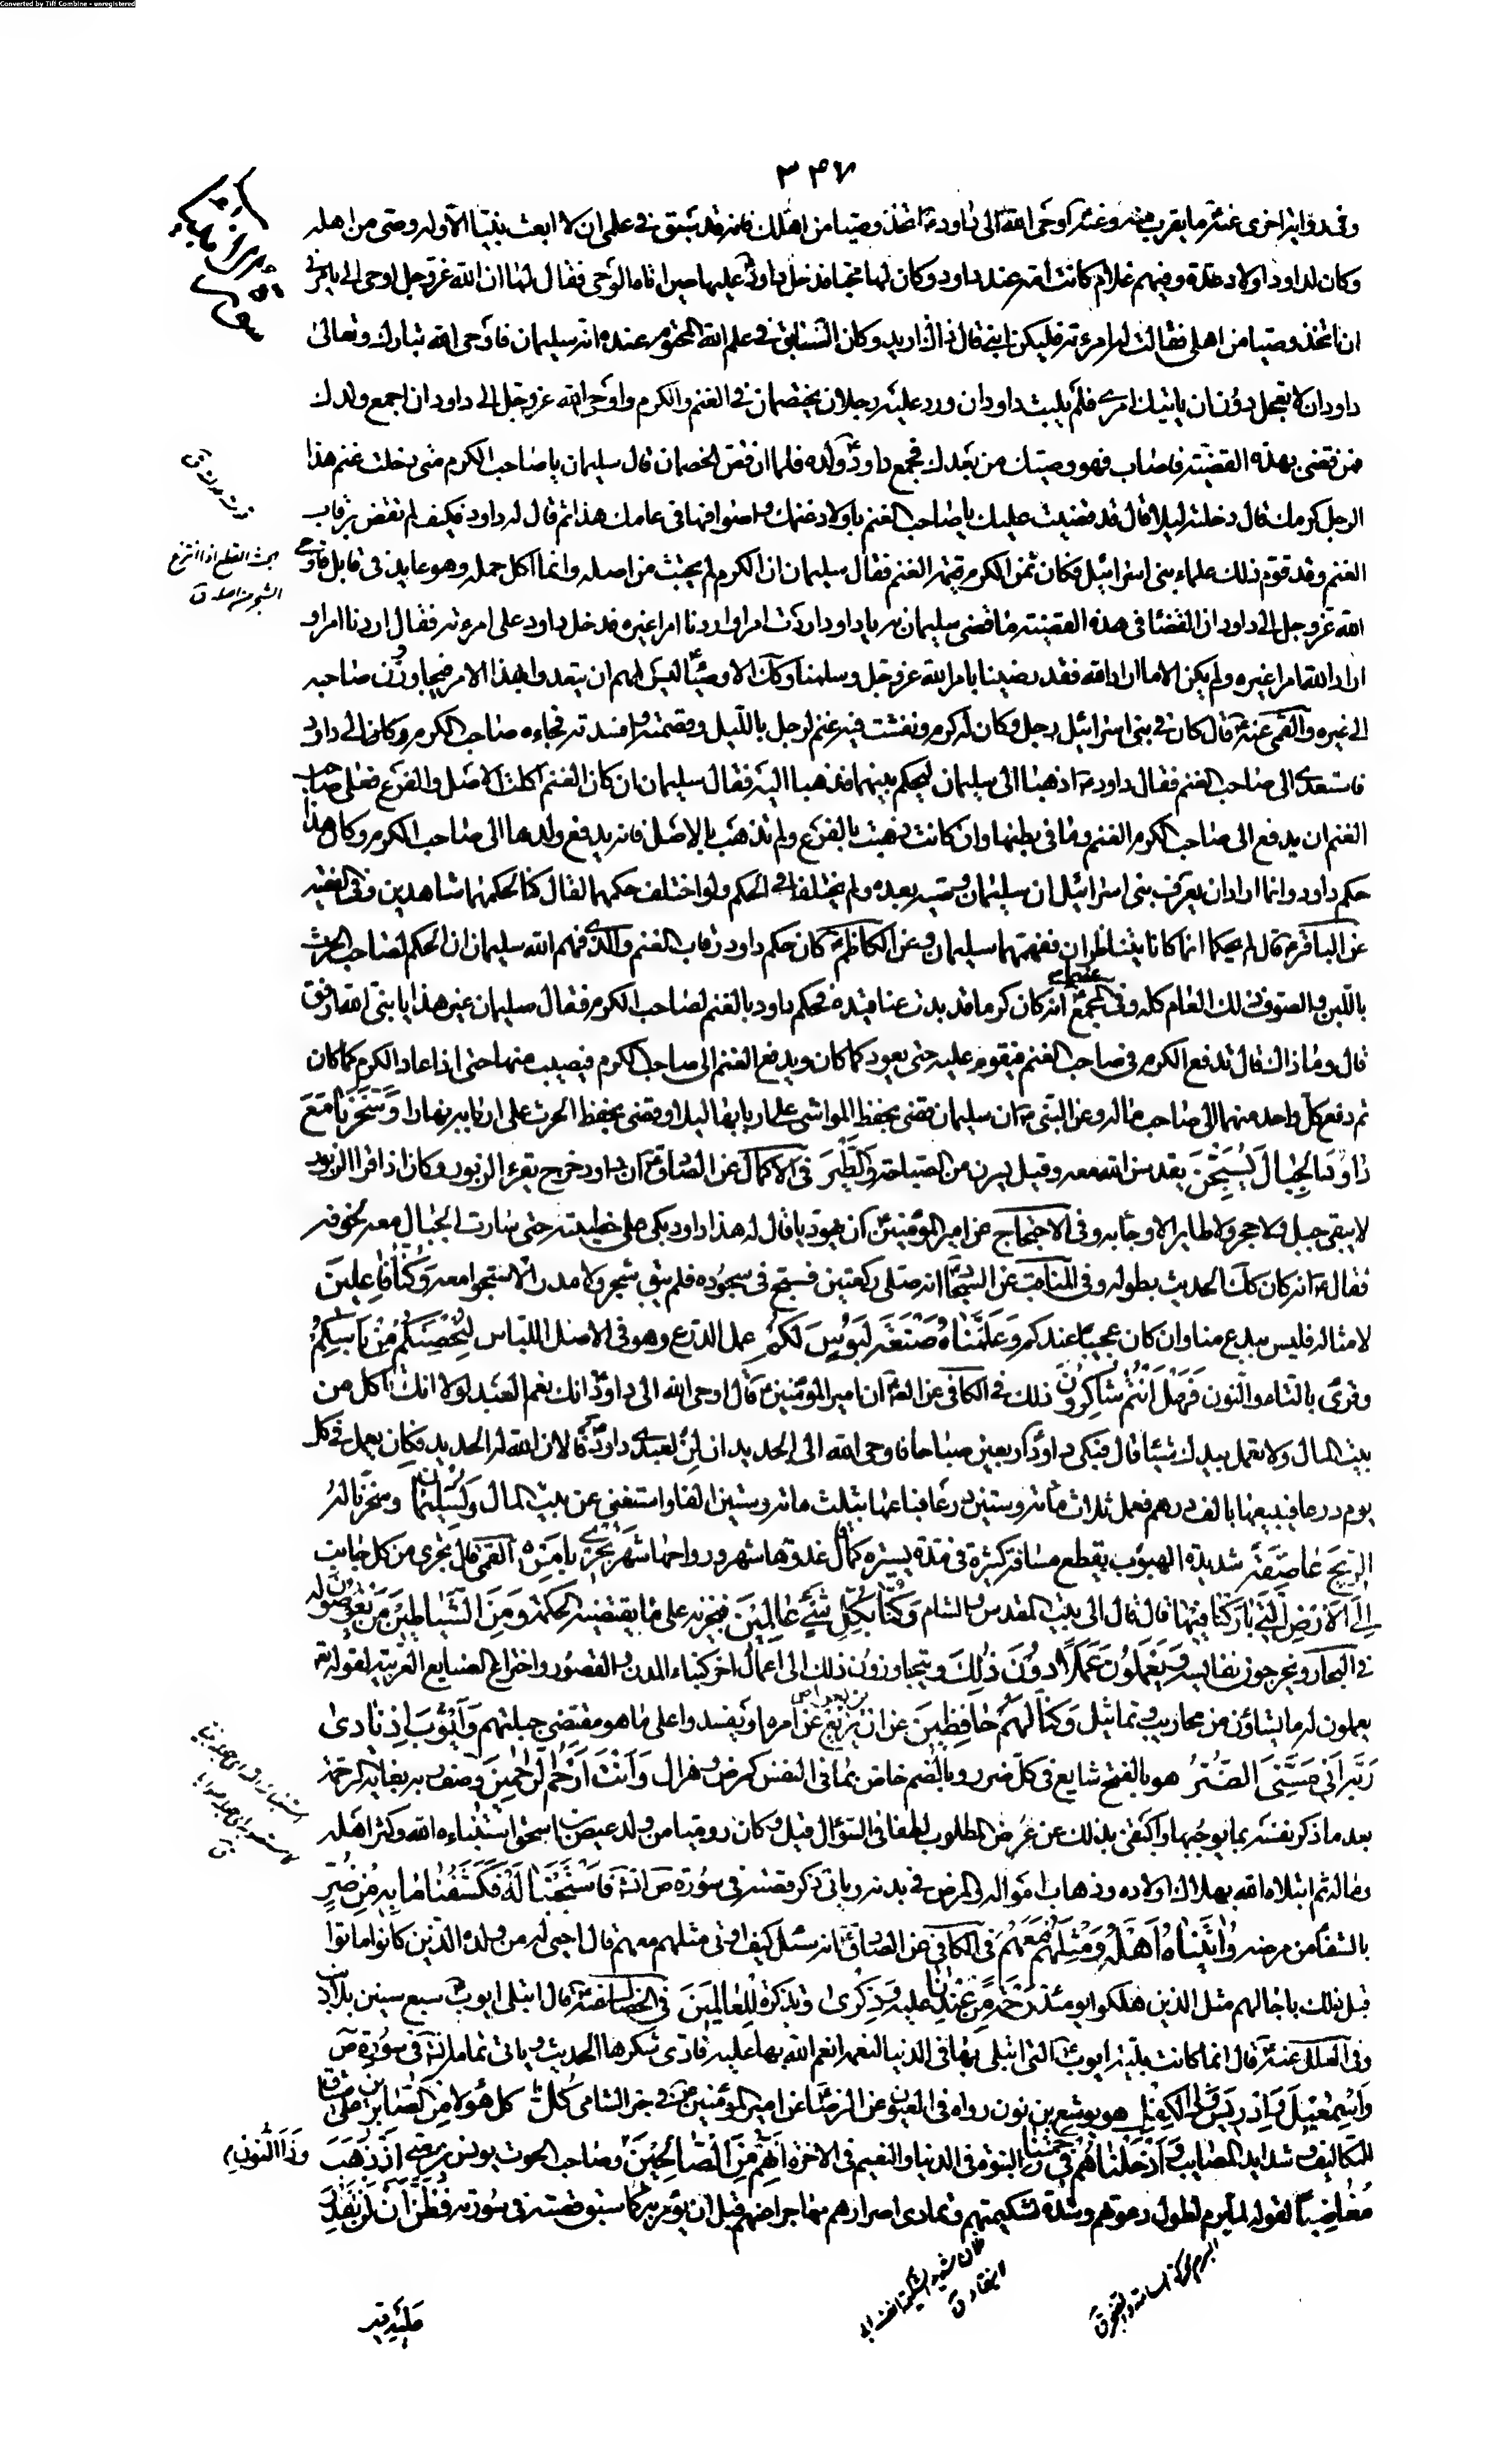 Converted by Tiff Combine - unregistered
٣٤٧
وفى رواية اخرى عنه ع ما يقرب منه وعنه ع اوحى الله الى داود ع ان اتخذ وصيا من اهلك فانه قد سبق فى علمى ان لا ابعث نبيا الا وله وصى من اهله
وكان لداود اولاد عدة وفيهم غلام كانت امه عند داود وكان لها محبا فدخل داود ع عليها حين اتاه الوحى فقال لها ان الله عز وجل اوحى الى يامرنى
ان اتخذ وصيا من اهلى فقالت له امرءته فليكن ابنى قال ذاك اريد وكان السابق فى علم الله المحتوم عنده انه سليمان فاوحى الله تبارك وتعالى
داود ان لا تعجل دون ان ياتيك امرى فلم يلبث داود ان ورد عليه رجلان يختصمان فى الغنم والكرم واوحى الله عز وجل الى داود ان اجمع ولدك
فمن قضى بهذه القضية فاصاب فهو وصيك من بعدك فجمع داود ع ولده فلما ان قص الخصمان قال سليمان يا صاحب الكرم متى دخلت غنم هذا
الرجل كرمك قال دخلته ليلا قال قد قضيت عليك يا صاحب الغنم باولاد غنمك واصوافها فى عامك هذا ثم قال له داود فكيف لم تقض برقاب
الغنم وقد قوم ذلك علماء بنى اسرائيل فكان ثمن الكرم قيمة الغنم فقال سليمان ان الكرم لم يجتث من اصله وانما اكل حمله وهو عايد فى قابل فاوحى
الله عز وجل الى داود ان القضاء فى هذه القضية ما قضى سليمان به يا داود اردت امرا واردنا امرا غيره فدخل داود على امرءته فقال اردنا امرا و
اراد الله امرا غيره ولم يكن الا ما اراد الله فقد رضينا بامر الله عز وجل وسلمنا وكذلك الاوصياء ليس لهم ان يتعدوا بهذا الامر فيجاوزون صاحبه
الى غيره والقمى عنه ع قال كان فى بنى اسرائيل رجل وكان له كرم ونفشت فيه غنم لرجل بالليل وقضمته وافسدته فجاءه صاحب الكرم الى داود
فاستعدى الى صاحب الغنم فقال داود ع اذهبا الى سليمان ليحكم بينهما فذهبا اليه فقال سليمان ان كان الغنم اكلت الاصل والفرع فعلى صاحب
الغنم ان يدفع الى صاحب الكرم الغنم وما فى بطنها وان كانت ذهبت بالفرع ولم تذهب بالاصل فانه يدفع ولدها الى صاحب الكرم وكان هذا
حكم داود وانما اراد ان يعرف بنى اسرائيل ان سليمان وصيه بعده ولم يختلفا فى الحكم ولو اختلف حكمهما لقال كنا لحكمهما شاهدين وفى الفقيه
عن الباقر ع قال لم يحكما انما كانا يتناظران ففهمها سليمان وعن الكاظم ع كان حكم داود رقاب الغنم والذى فهم الله سليمان ان الحكم لصاحب الحرث
باللبن والصوف ذلك العام كله وفى المجمع عنهما ع انه كان كرما قد بدت عناقيده فحكم داود بالغنم لصاحب الكرم فقال سليمان غير هذا يا نبى الله ارفق
قال وما ذاك قال تدفع الكرم فى صاحب الغنم فيقوم عليه حتى يعود كما كان ويدفع الغنم الى صاحب الكرم فيصيب منها حتى اذا عاد الكرم كما كان
ثم دفع كل واحد منهما الى صاحب ماله وعن النبى ص ان سليمان قضى بحفظ المواشى على اربابها ليلا وقضى بحفظ الحرث على اربابه نهارا وَسَخَّرْنَا مَعَ
دَاوُدَ الْجِبَالَ يُسَبِّحْنَ يقدسن الله معه وقيل يسرن من السباحة وَالطَّيْرَ فى الاكمال عن الصادق ع ان داود خرج يقرء الزبور وكان اذا قرا الزبور
لا يبقى جبل ولا حجر ولا طاير الا وجابه وفى الاحتجاج عن امير المؤمنين ع ان يهوديا قال له هذا داود بكى على خطيئته حتى سارت الجبال معه لخوفه
فقال ع انه كان كذلك الحديث بطوله وفى المناقب عن السجاد ع انه صلى ركعتين فسبح فى سجوده فلم يبق شجر ولا مدر الا سبحوا معه وَكُنَّا فَاعِلِينَ
لامثاله فليس ببدع منا وان كان عجيبا عندكم وَعَلَّمْنَاهُ صَنْعَةَ لَبُوسٍ لَكُمْ عمل الدرع وهو فى الاصل اللباس لِتُحْصِنَكُمْ مِنْ بَأْسِكُمْ
وقرئ بالتاء والنون فَهَلْ أَنْتُمْ شَاكِرُونَ ذلك فى الكافى عن الصادق ع ان امير المؤمنين ع قال اوحى الله الى داود ع انك نعم العبد لولا انك تاكل من
بيت المال ولا تعمل بيدك شيئا قال فبكى داود ع اربعين صباحا فاوحى الله الى الحديد ان لن لعبدى داود ع فالان الله له الحديد فكان يعمل فى كل
يوم درعا فيبيعها بالف درهم فعمل ثلاث مائة وستين درعا فباعها بثلث مائة وستين الفا واستغنى عن بيت المال وَلِسُلَيْمَانَ وسخرنا له
الرِّيحَ عَاصِفَةً شديدة الهبوب يقطع مسافة كثيرة فى مدة يسيرة كما قال غدوها شهر ورواحها شهر تَجْرِي بِأَمْرِهِ القمى قال تجرى من كل جانب
إِلَى الْأَرْضِ الَّتِي بَارَكْنَا فِيهَا قال قال الى بيت المقدس والشام وَكُنَّا بِكُلِّ شَيْءٍ عَالِمِينَ فنجريه على ما يقتضيه الحكمة وَمِنَ الشَّيَاطِينِ مَنْ يَغُوصُونَ لَهُ
فى البحار ويخرجون نفايسه وَيَعْمَلُونَ عَمَلًا دُونَ ذَلِكَ ويتجاوزون ذلك الى اعمال اخر كبناء المدن والقصور واختراع الصنايع الغريبة لقوله تعالى
يعملون له ما يشاؤن من محاريب وتماثيل وَكُنَّا لَهُمْ حَافِظِينَ عن ان يزيغ عن امره او يفسدوا على ما هو مقتضى جبلتهم وَأَيُّوبَ إِذْ نَادَى
رَبَّهُ أَنِّي مَسَّنِيَ الضُّرُّ هو بالفتح شايع فى كل ضرر وبالضم خاص بما فى النفس كمرض وهزال وَأَنْتَ أَرْحَمُ الرَّاحِمِينَ وصف ربه بغاية الرحمة
بعد ما ذكر نفسه بما يوجبها واكتفى بذلك عن عرض المطلوب لطفا فى السؤال قيل وكان روميا من ولد عيص بن اسحق استنباءه الله وكثر اهله
وماله ثم ابتلاه الله بهلاك اولاده وذهاب امواله والمرض فى بدنه وياتى ذكر قصته فى سورة ص انش فَاسْتَجَبْنَا لَهُ فَكَشَفْنَا مَا بِهِ مِنْ ضُرٍّ
بالشفاء من مرضه وَآتَيْنَاهُ أَهْلَهُ وَمِثْلَهُمْ مَعَهُمْ فى الكافى عن الصادق ع انه سئل كيف اوتى مثلهم معهم قال احيى له من ولده الذين كانوا ماتوا
قبل ذلك باجالهم مثل الذين هلكوا يومئذ رَحْمَةً مِنْ عِنْدِنَا عليه وَذِكْرَى وتذكرة لِلْعَابِدِينَ فى الخصال عنه ع قال ابتلى ايوب ع سبع سنين بلا ذنب
وفى العلل عنه ع قال انما كانت بلية ايوب ع التى ابتلى بها فى الدنيا لنعمة انعم الله بها عليه فادى شكرها الحديث وياتى تمامه انش فى سورة ص
وَإِسْمَعِيلَ وَإِدْرِيسَ وَذَا الْكِفْلِ هو يوشع بن نون رواه فى العيون عن الرضا ع عن امير المؤمنين ع فى خبر الشامى كُلٌّ كل هؤلاء مِنَ الصَّابِرِينَ على مشاق
التكاليف وشدايد المصايب وَأَدْخَلْنَاهُمْ فِي رَحْمَتِنَا النبوة فى الدنيا والنعيم فى الاخرة إِنَّهُمْ مِنَ الصَّالِحِينَ وَذَا النُّونِ وصاحب الحوت يونس بن متى إِذْ ذَهَبَ
مُغَاضِبًا لقومه لما برم لطول دعوتهم وشدة شكيمتهم وتمادى اصرارهم مهاجرا عنهم قبل ان يؤمر به كما سبق قصته فى سورته فَظَنَّ أَنْ لَنْ نَقْدِرَ
عَلَيْهِ
الجث القطع او انتزاع
الشجر من اصله ق